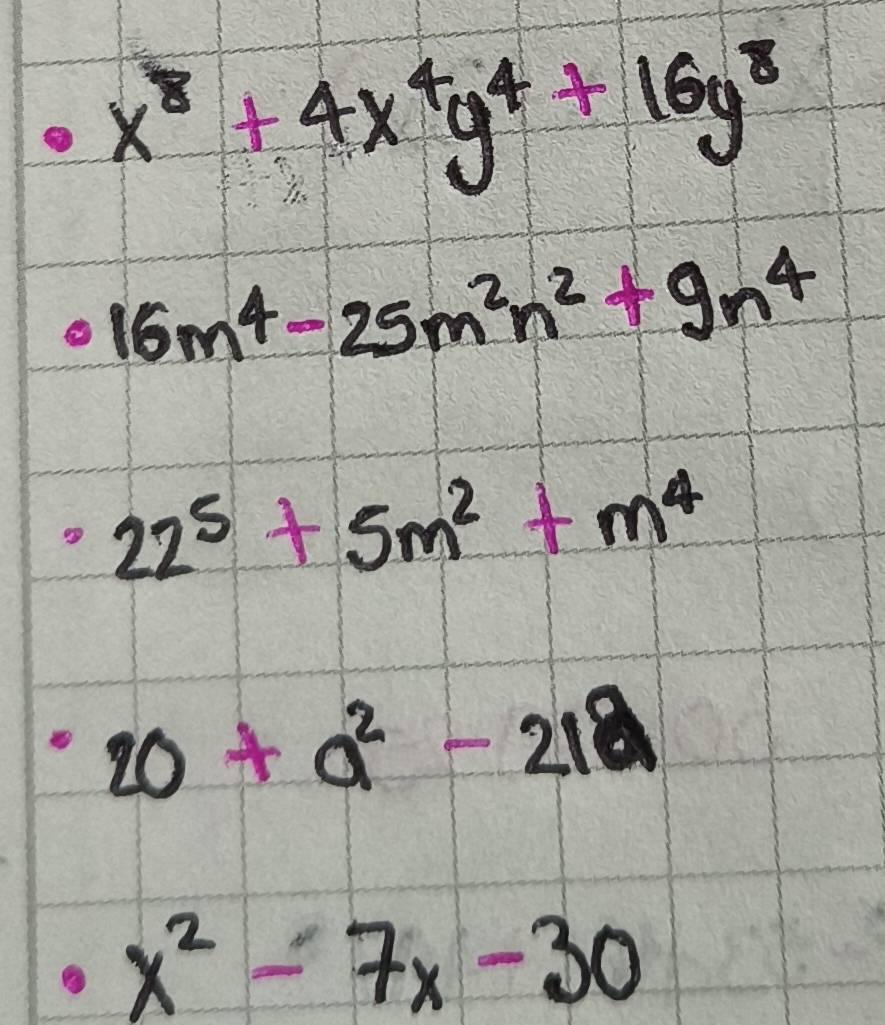 • x⁸ + 4x⁴y⁴ + 16y⁸
• 16m⁴ - 25m²n² + 9n⁴
• 22⁵ + 5m² + m⁴
• 20 + a² - 21a
• x² - 7x - 30